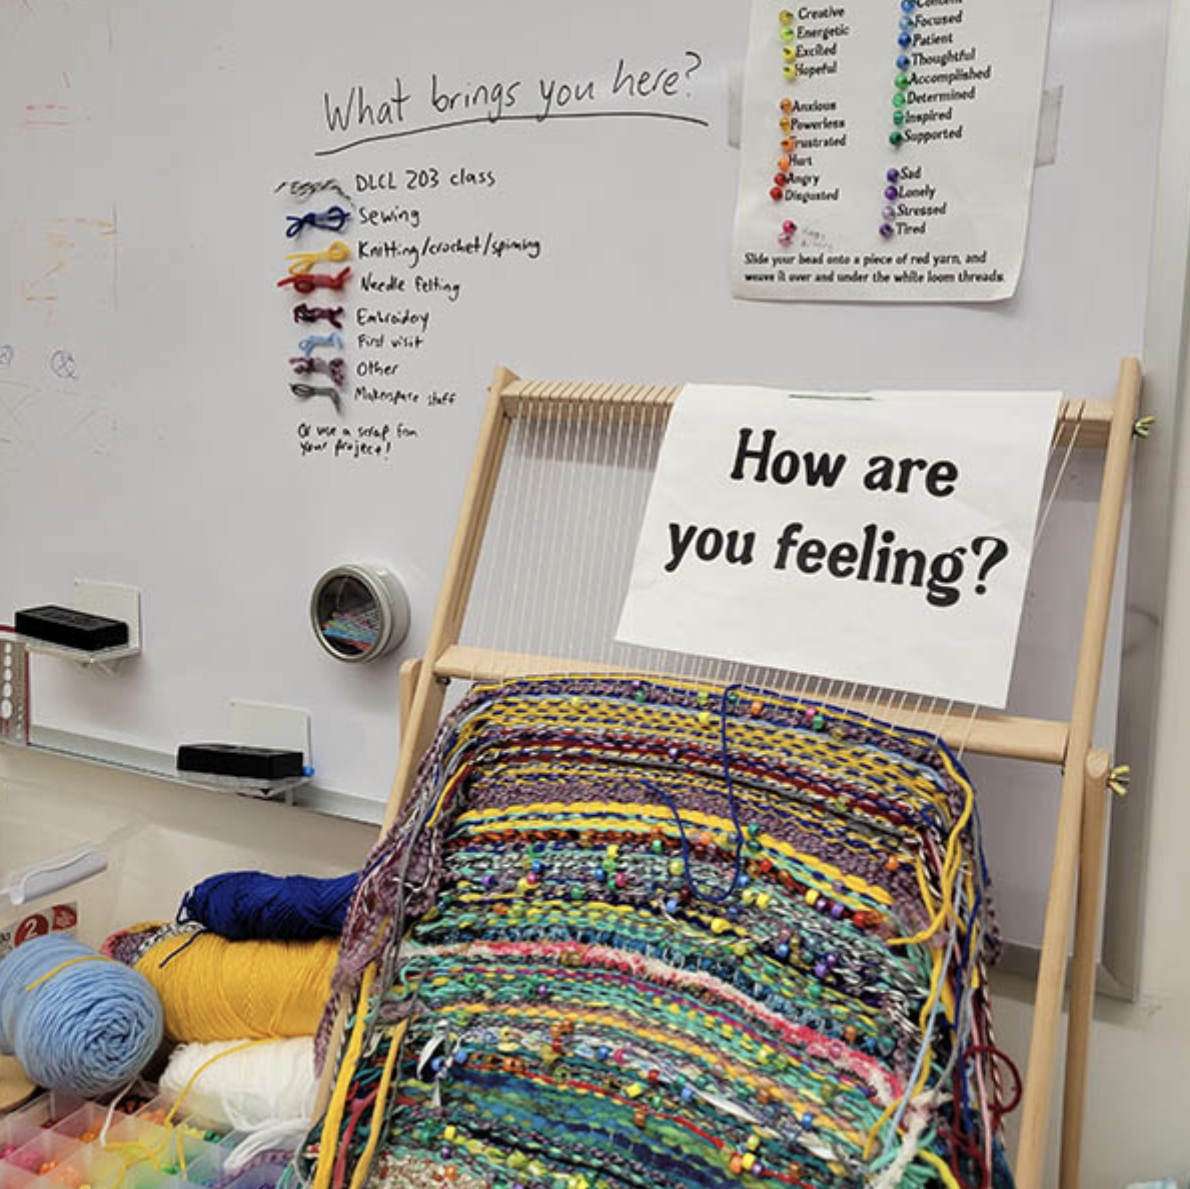 What brings you here?
DLCL 203 class
Sewing
Knitting/crochet/spinning
Needle felting
Embroidery
First visit
Other
Makerspace staff
Or use a scrap from
your project!
Creative
Energetic
Excited
Hopeful
Anxious
Powerless
Frustrated
Hurt
Angry
Disgusted
Content
Focused
Patient
Thoughtful
Accomplished
Determined
Inspired
Supported
Sad
Lonely
Stressed
Tired
Slide your bead onto a piece of red yarn, and
weave it over and under the white loom threads.
How are
you feeling?
2